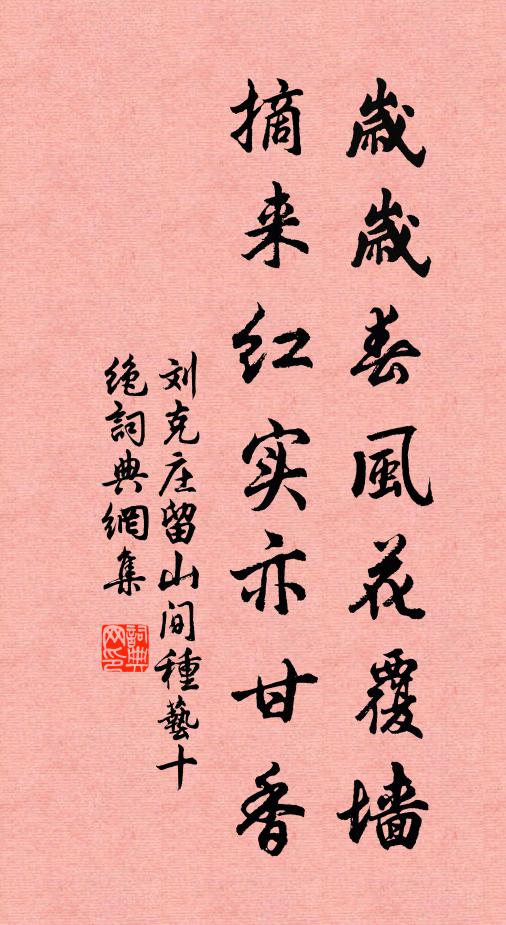 歲歲春風花覆墙
摘来红实亦甘香
刘克庄留山间種藝十
绝詞典網集
詞典网印